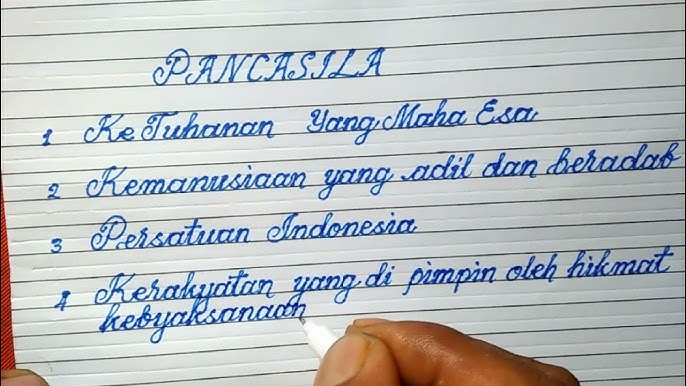 PANCASILA
1 KeTuhanan Yang Maha Esa
2 Kemanusiaan yang adil dan beradab
3 Persatuan Indonesia
4 Kerakyatan yang di pimpin oleh hikmat
kebyaksanaan